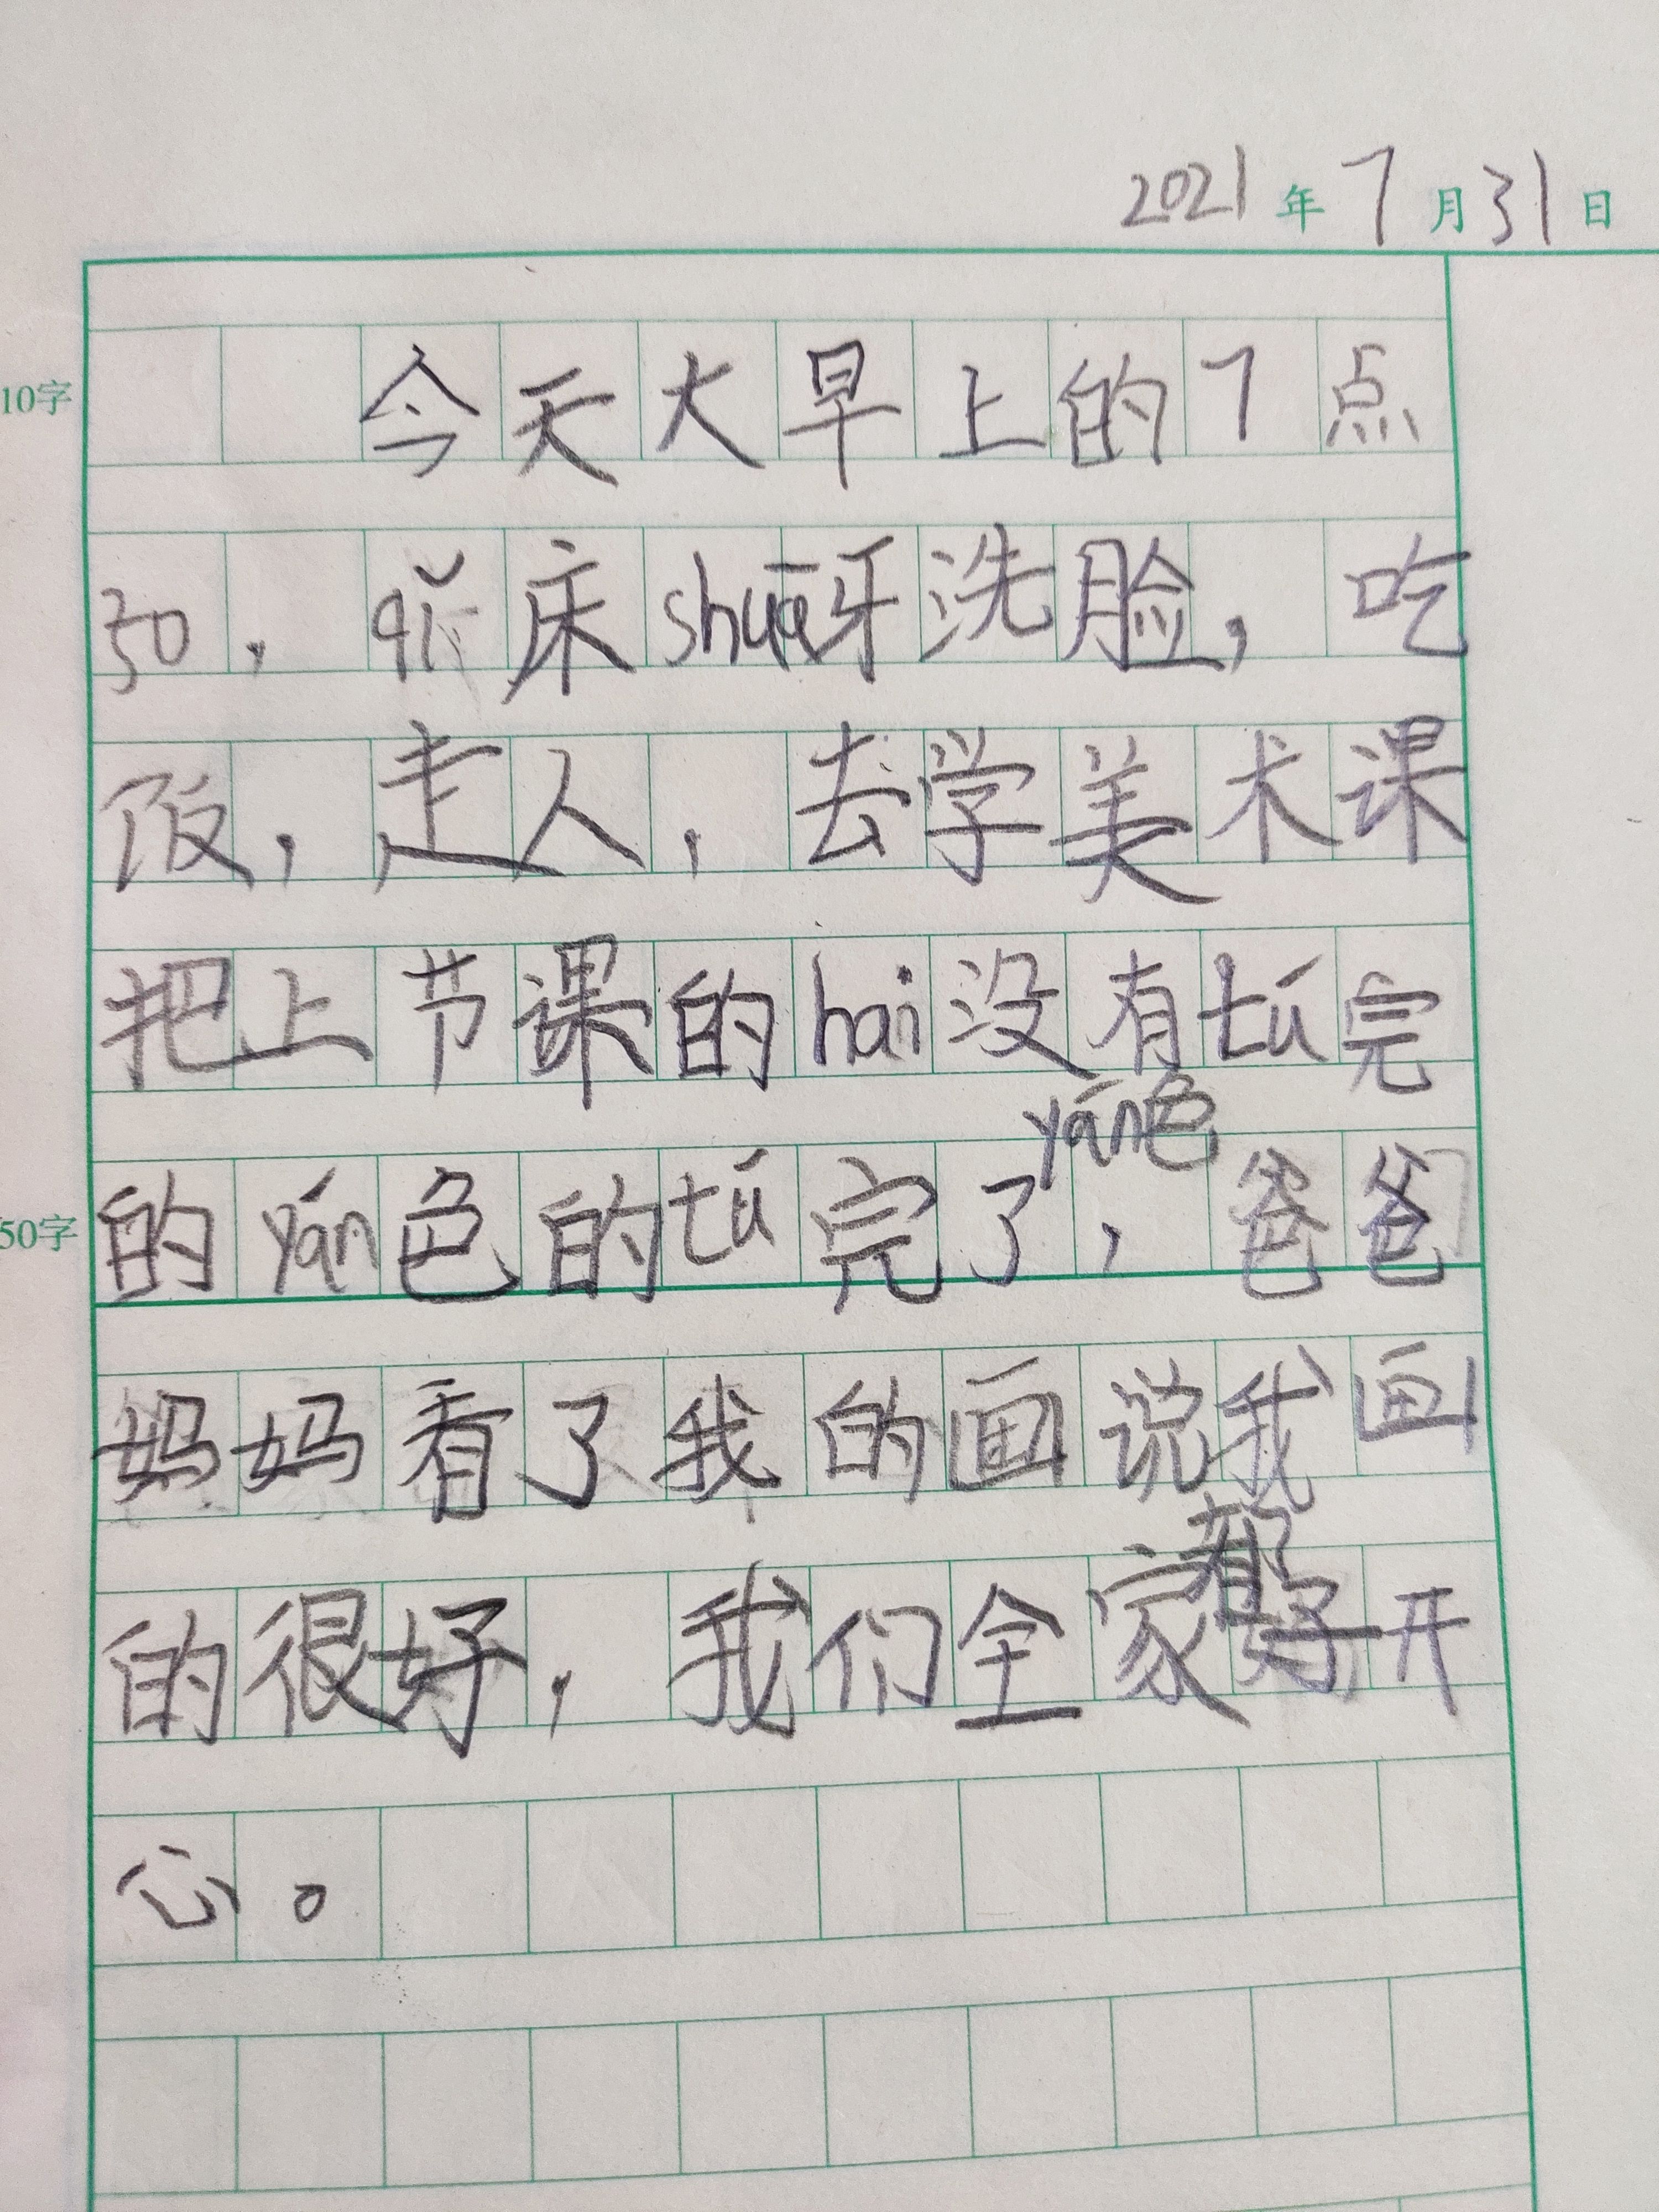 2021年7月31日
10字
今天大早上的7点
30，qǐ床shuā牙洗脸，吃
饭，走人，去学美术课
把上节课的hai没有tú完
yán色
50字
的yán色的tú完了，爸爸
妈妈看了我的画说我画
都
的很好，我们全家好开
心。